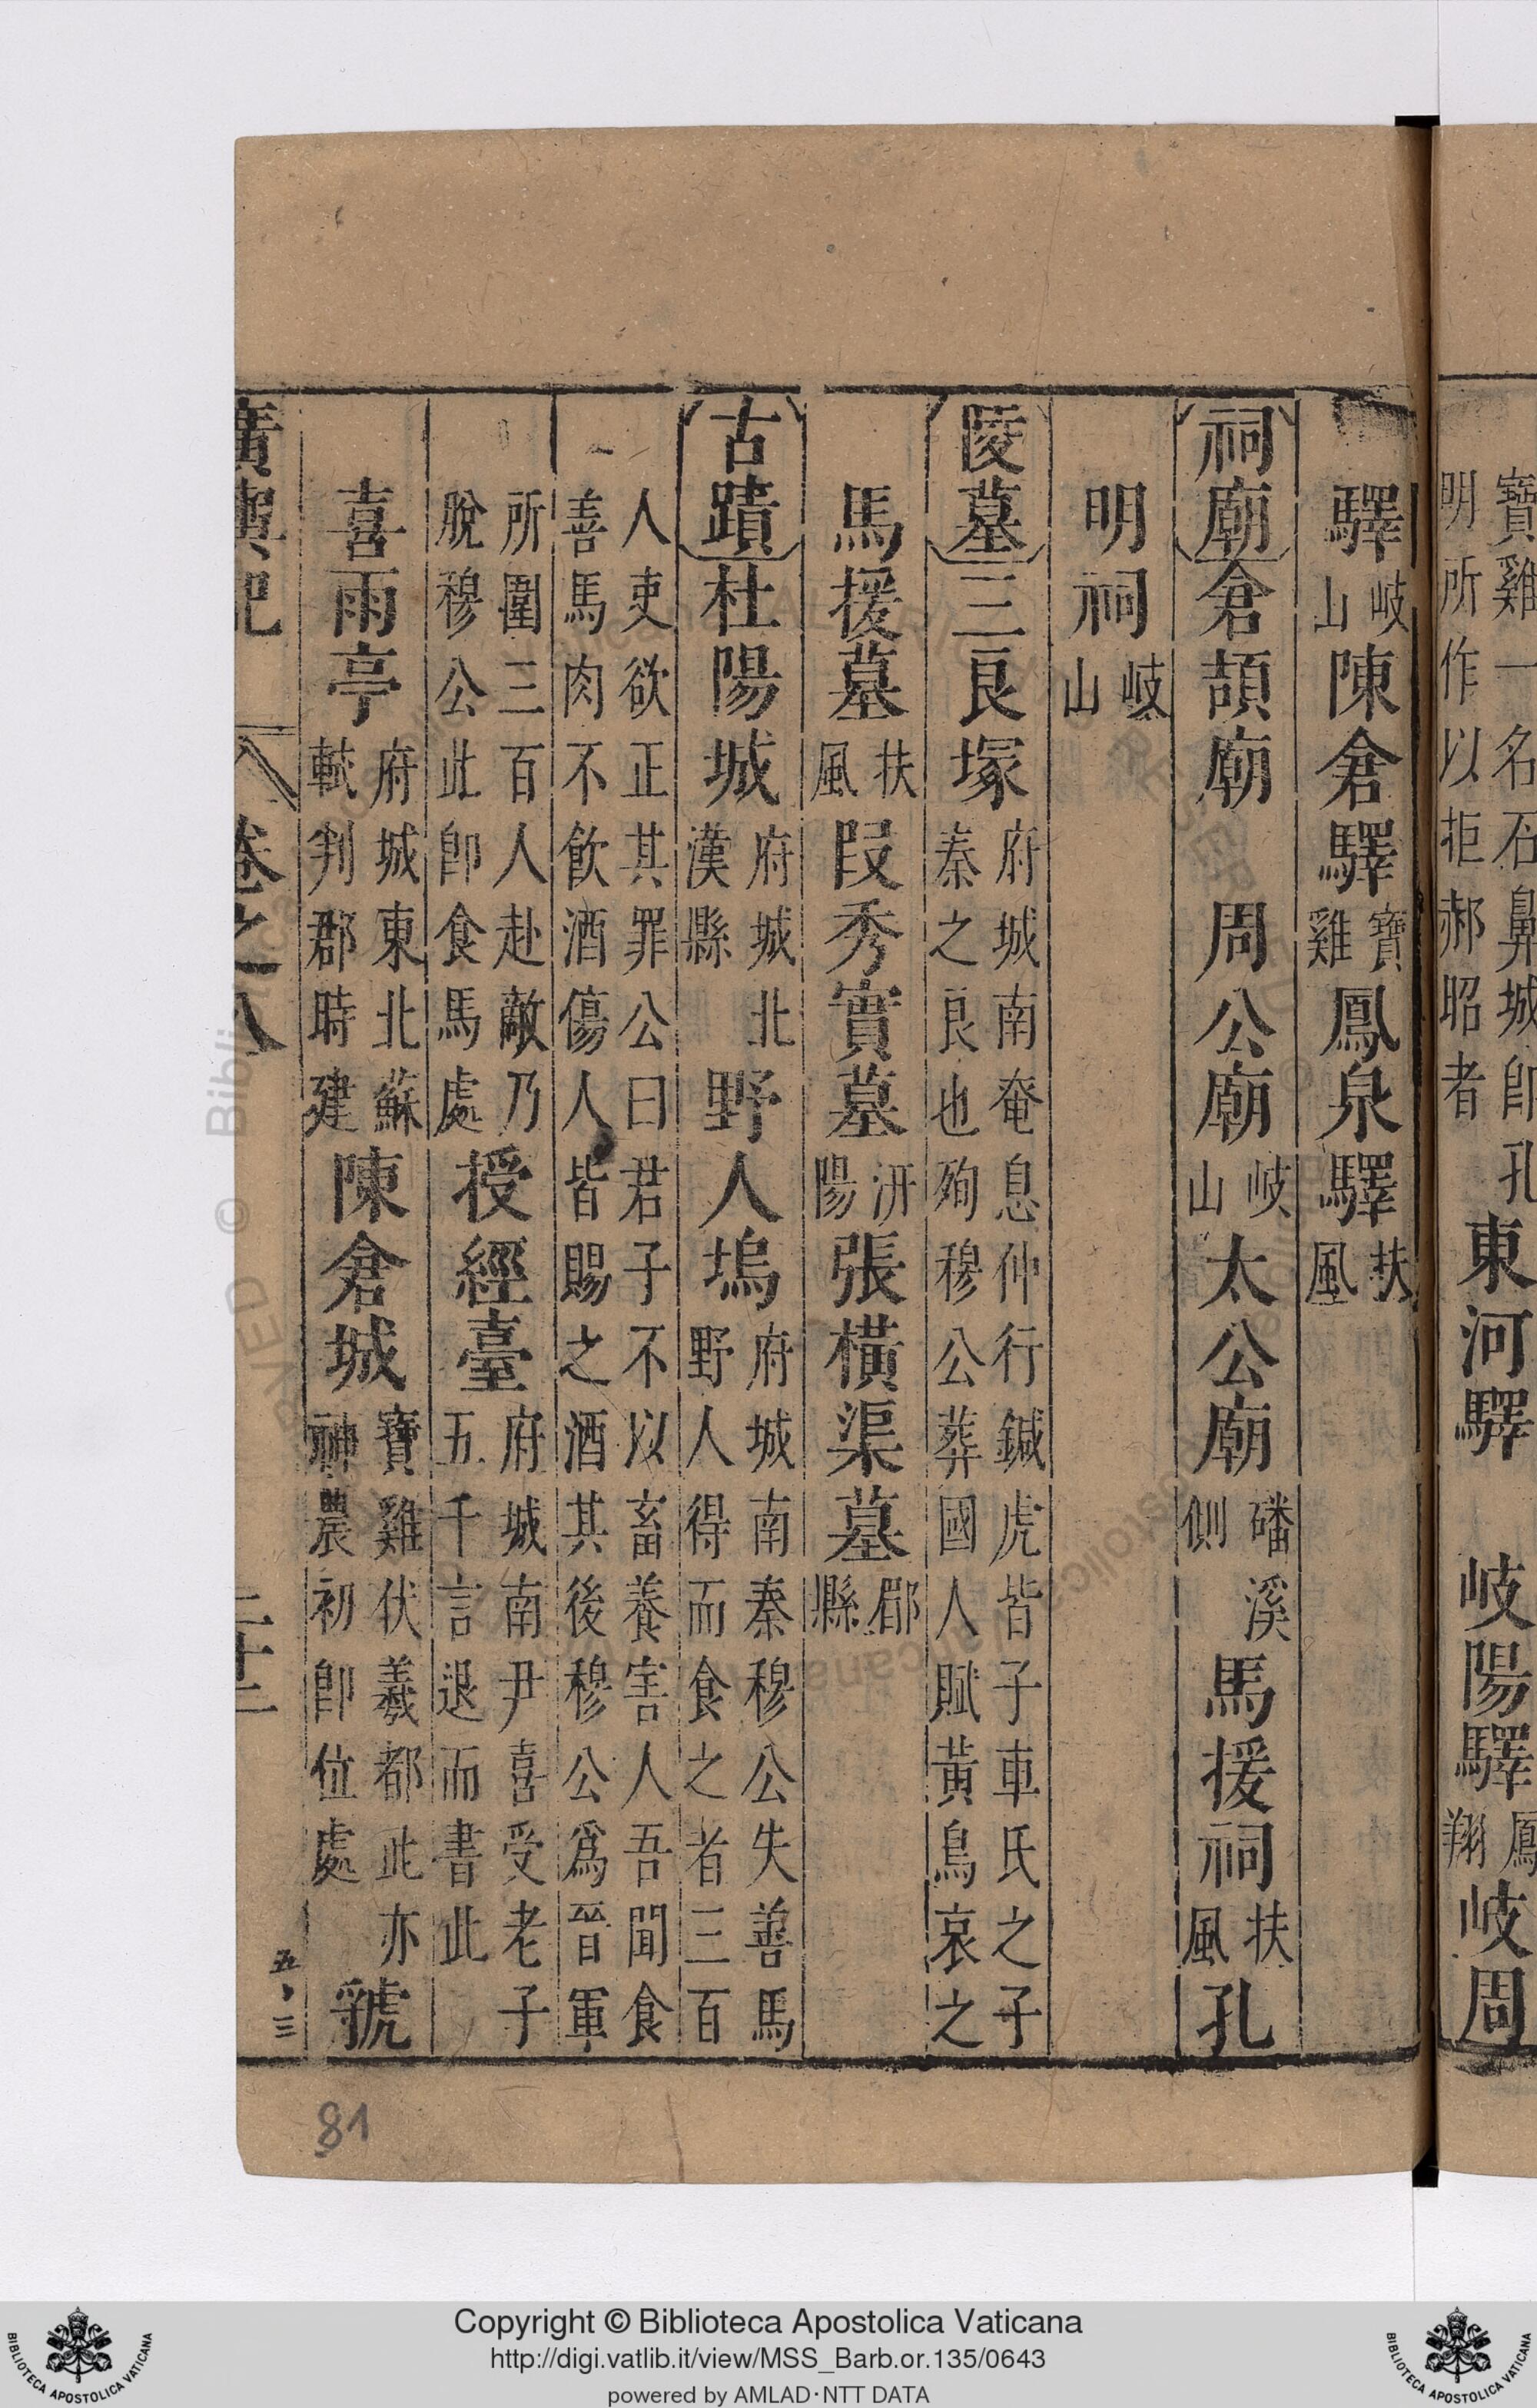 寶雞一名石鼻城即孔
明所作以拒郝昭者
東河驛
岐陽驛
鳳
翔
岐周
驛
岐
山
陳倉驛
寶
雞
鳳泉驛
扶
風
祠廟
倉頡廟
周公廟
岐
山
太公廟
磻溪
側
馬援祠
扶
風
孔
明祠
岐
山
陵墓
三良塚
府城南奄息仲行鍼虎皆子車氏之子
秦之良也殉穆公葬國人賦黃鳥哀之
馬援墓
扶
風
段秀實墓
汧
陽
張橫渠墓
郿
縣
古蹟
杜陽城
府城北
漢縣
野人塢
府城南秦穆公失善馬
野人得而食之者三百
人吏欲正其罪公曰君子不以畜養害人吾聞食
善馬肉不飲酒傷人皆賜之酒其後穆公爲晉軍
所圍三百人赴敵乃
脫穆公此卽食馬處
授經臺
府城南尹喜受老子
五千言退而書此
喜雨亭
府城東北蘇
軾判郡時建
陳倉城
寶雞伏羲都此亦
神農初卽位處
虢
廣輿記
卷之八
二十三
五、三
81
© Biblioteca Apostolica Vaticana
BIBLIOTECA APOSTOLICA VATICANA
Copyright © Biblioteca Apostolica Vaticana
http://digi.vatlib.it/view/MSS_Barb.or.135/0643
powered by AMLAD·NTT DATA
BIBLIOTECA APOSTOLICA VATICANA